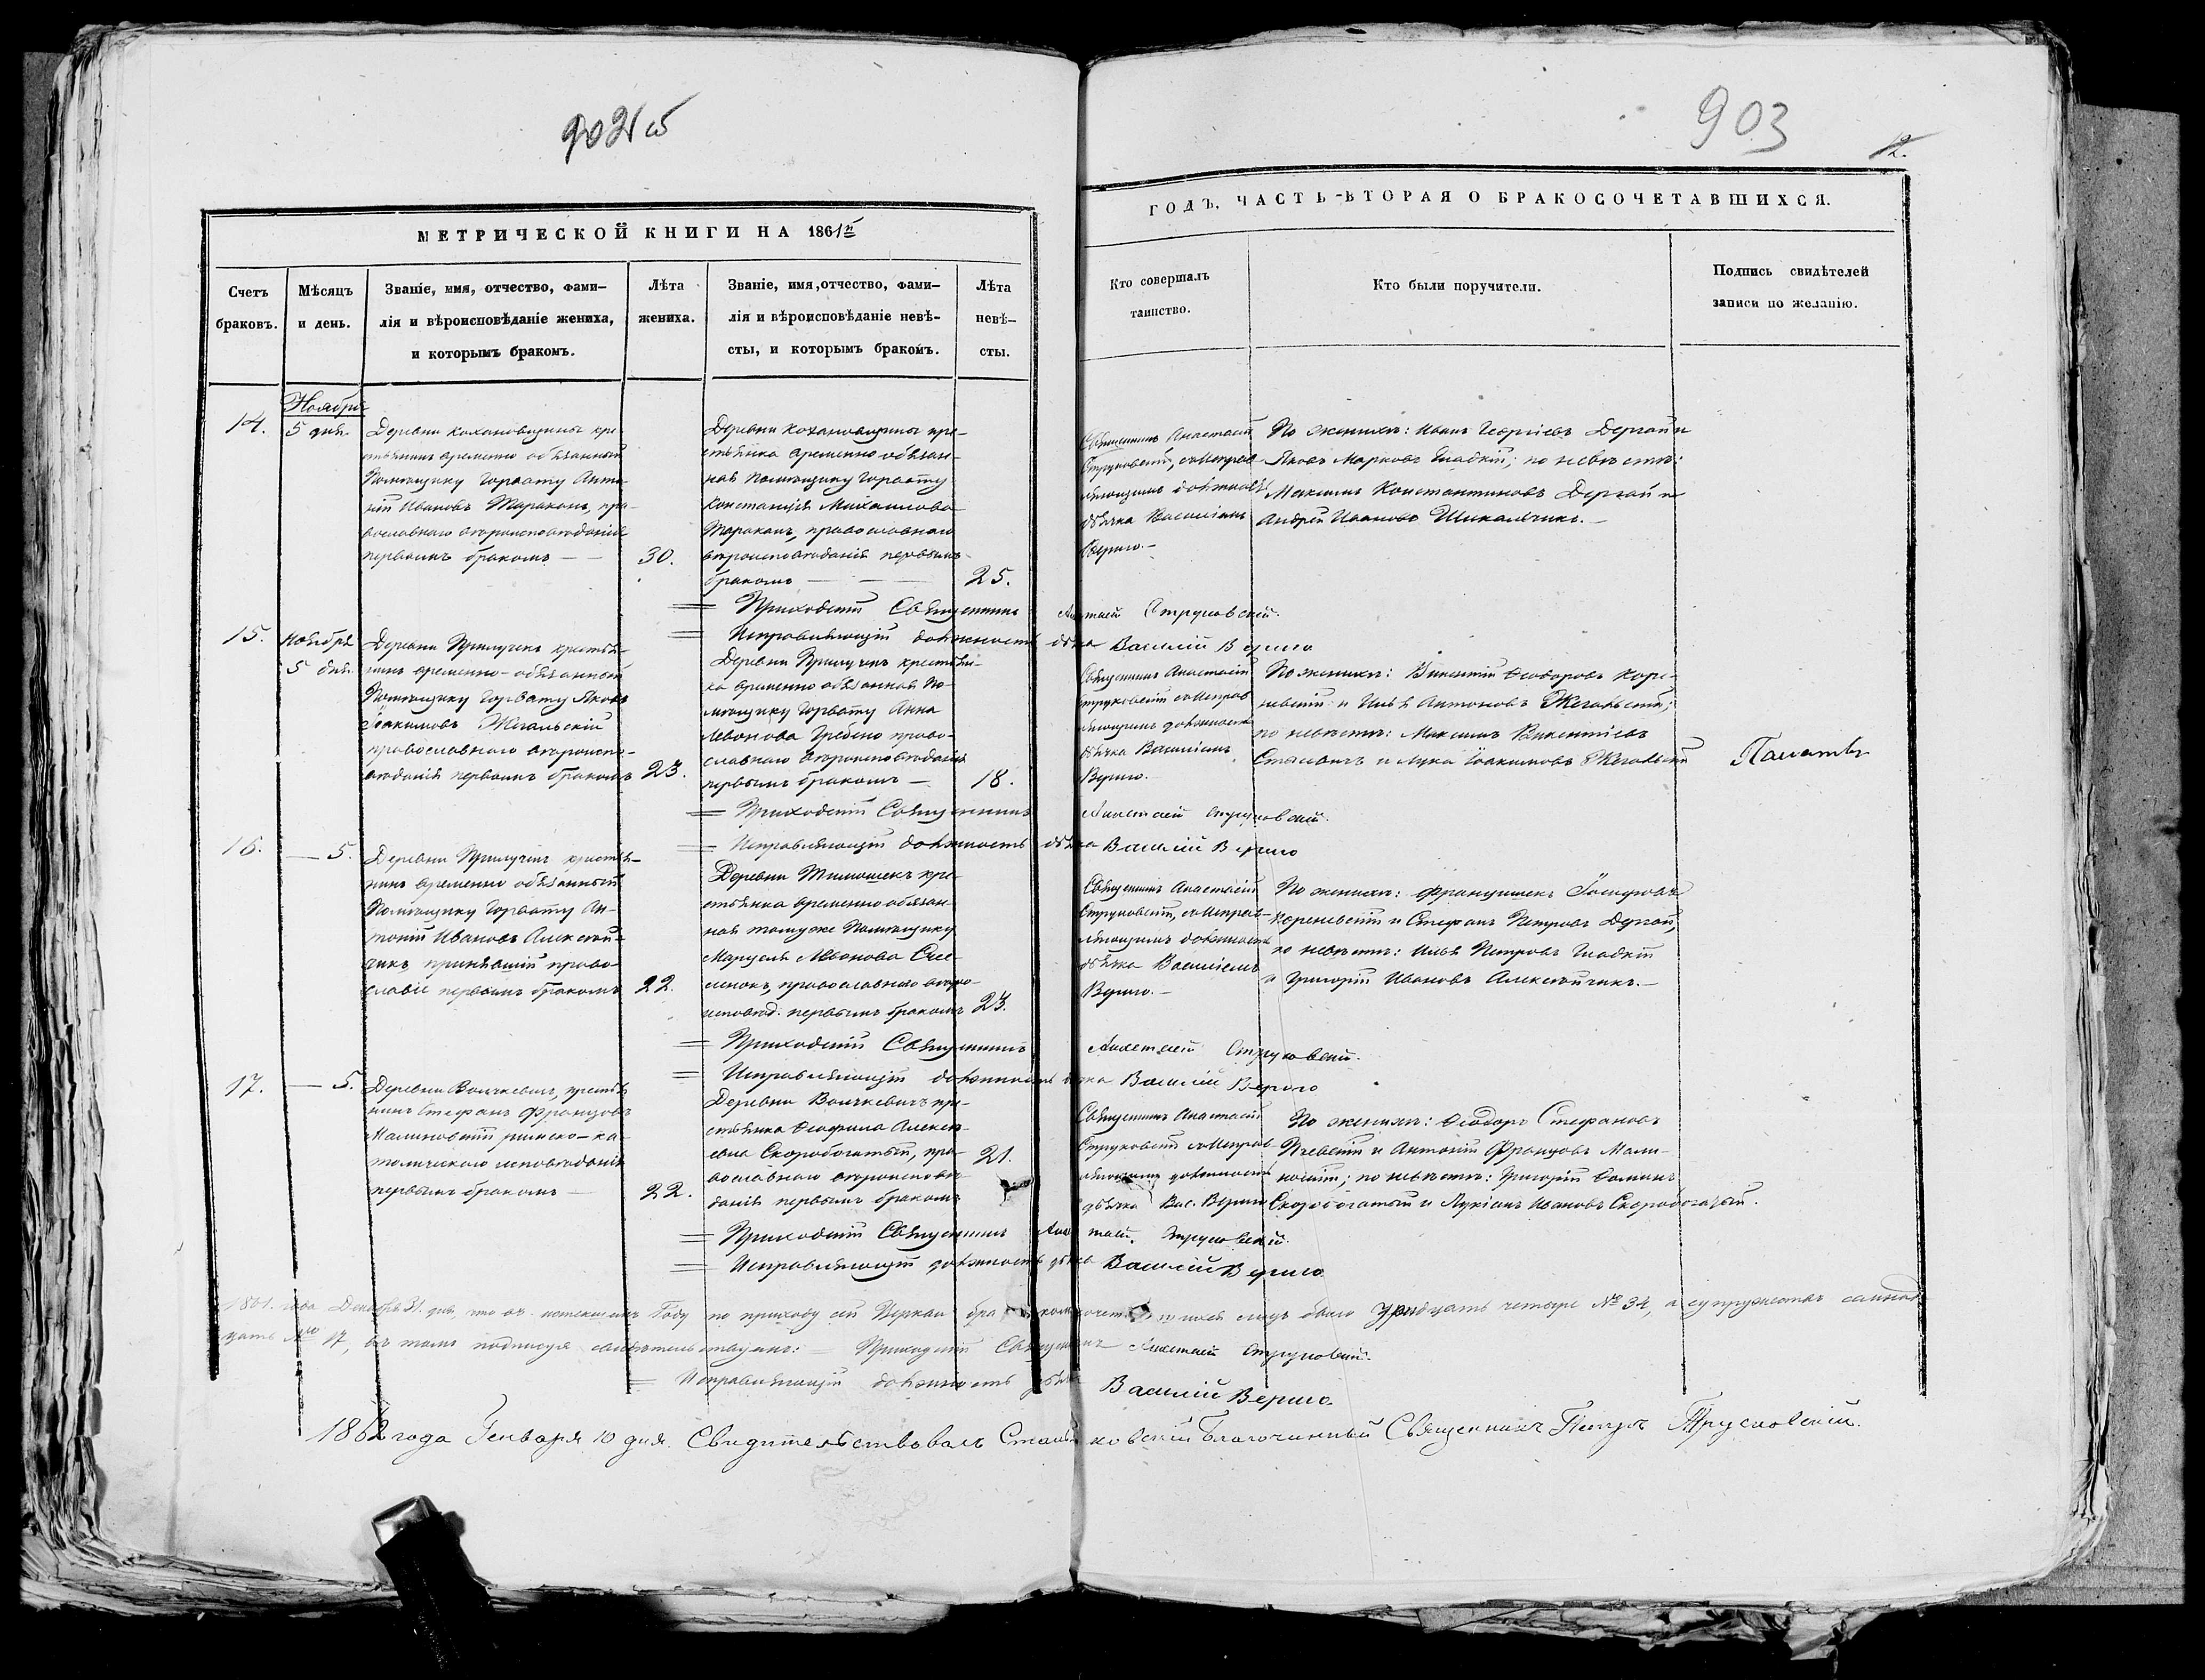 902 об
903
12.
МЕТРИЧЕСКОЙ КНИГИ НА 1861й
ГОДЪ, ЧАСТЬ ВТОРАЯ О БРАКОСОЧЕТАВШИХСЯ.
Счетъ
браковъ.
Мѣсяцъ
и день.
Званіе, имя, отчество, фами-
лія и вѣроисповѣданіе жениха,
и которымъ бракомъ.
Лѣта
жениха.
Званіе, имя, отчество, фами-
лія и вѣроисповѣданіе невѣ-
сты, и которымъ бракомъ.
Лѣта
невѣ-
сты.
Кто совершалъ
таинство.
Кто были поручители.
Подпись свидѣтелей
записи по желанію.
14.
Ноябрь
5 дня
Деревни Кохановщины кре-
стьянинъ временно обязанный
Помѣщику Горвату Анто-
ній Ивановъ Тараканъ, пра-
вославнаго вѣроисповѣданія
первымъ бракомъ —
30.
Деревни Кохановщины кре-
стьянка временно обязан-
ная Помѣщику Горвату
Констанція Михаилова
Тараканъ, православнаго
вѣроисповѣданія первымъ
бракомъ —
25.
Священникъ Анастасій
Струковскій, съ исправ-
ляющимъ должность
дьячка Василіемъ
Верыго.—
По женихѣ: Иванъ Георгіевъ Дергай и
Яковъ Марковъ Гладкій; по невѣстѣ:
Максимъ Константиновъ Дергай и
Андрей Ивановъ Шикальчикъ.—
= Приходскій Священникъ Анастасій Струковскій.
= Исправляющій должность дьячка Василій Верыго
15.
Ноября
5 дня
Деревни Прилучекъ крестья-
нинъ временно-обязанный
Помѣщику Горвату Яковъ
Іоакимовъ Жегальскій
православнаго вѣроиспо-
вѣданія первымъ бракомъ
23.
Деревни Прилучекъ крестьян-
ка временно обязанная По-
мѣщику Горвату Анна
Левонова Гребено право-
славнаго вѣроисповѣданія
первымъ бракомъ —
18.
Священникъ Анастасій
Струковскій съ исправ-
ляющимъ должность
дьячка Василіемъ
Верыго.
По женихѣ: Викентій Ѳеодоровъ Коре-
невскій и Илья Антоновъ Жегальскій;
по невѣстѣ: Максимъ Викентіевъ
Стасевичъ и Лука Іоакимовъ Жегальскій
= Приходскій Священникъ Анастасій Струковскій.
= Исправляющій должность дьячка Василій Верыго
16.
— 5.
Деревни Прилучекъ крестья-
нинъ временно обязанный
Помѣщику Горвату Ан-
тоній Ивановъ Алексѣй-
чикъ, принявшій право-
славіе первымъ бракомъ
22.
Деревни Тимошекъ кре-
стьянка временно обязан-
ная тому же Помѣщику
православнаго вѣро-
исповѣд. первымъ бракомъ
23.
Священникъ Анастасій
Струковскій, съ исправ-
ляющимъ должность
дьячка Василіемъ
Верыго.—
По женихѣ: Францишекъ Іосифовъ
Кореневскій и Стефанъ Петровъ Дергай,
по невѣстѣ: Илья Петровъ Гладкій
и Григорій Ивановъ Алексѣйчикъ.—
= Приходскій Священникъ Анастасій Струковскій.
= Исправляющій должность дьячка Василій Верыго
17.
— 5.
Деревни Волчкевичъ, крестья-
нинъ Стефанъ Францовъ
Малиновскій римско-ка-
толическаго исповѣданія
первымъ бракомъ —
22.
Деревни Волчкевичъ кре-
стьянка Ѳеофила Алексѣ-
ева Скоробогатый, пра-
вославнаго вѣроисповѣ-
данія первымъ бракомъ
21.
Священникъ Анастасій
Струковскій съ исправ-
ляющимъ должность
дьячка Вас. Верыго
По женихѣ: Ѳеодоръ Стефановъ
и Антоній Францовъ Мали-
новскій; по невѣстѣ: Григорій
Скоробогатый и Лукіанъ Ивановъ Скоробогатый.
= Приходскій Священникъ Анастасій Струковскій.
= Исправляющій должность дьячка Василій Верыго
1861. года Декабря 31. дня, что въ истекшемъ Году по приходу сей Церкви бракосочетавшихся лицъ было тридцать четыре № 34, а супружествъ семнад-
цать № 17, въ томъ подписуя свидѣтельствуемъ: — Приходскій Священникъ Анастасій Струковскій.
= Исправляющій должность дьячка Василій Верыго.
1862 года Генваря 10 дня. Свидѣтельствовалъ Станьковскій Благочинный Священникъ Петръ Трусковскій.